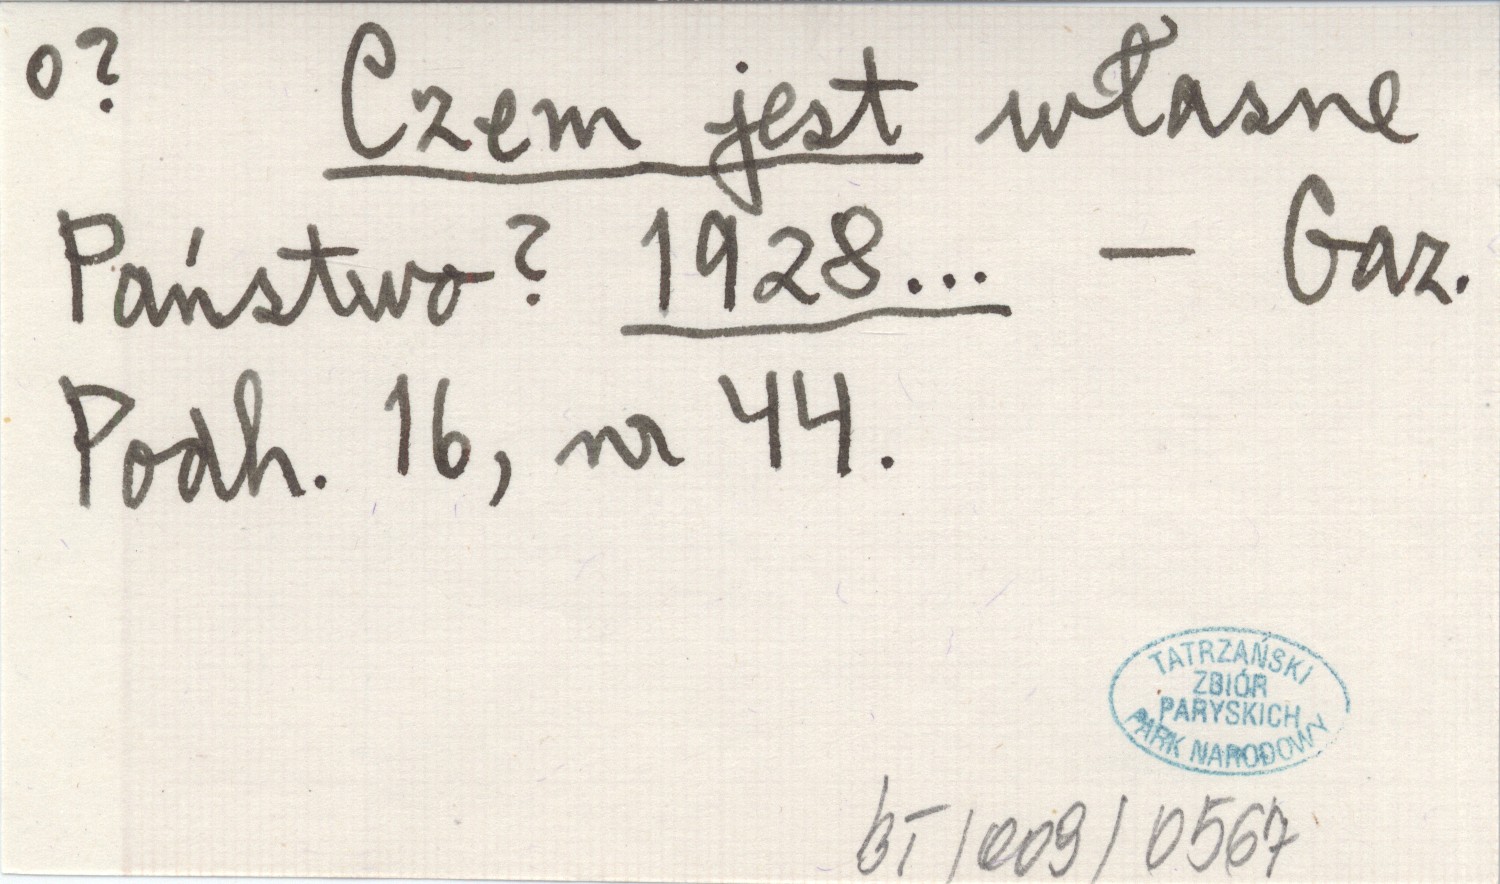 o? Czem jest własne
Państwo? 1928... — Gaz.
Podh. 16, nr 44.
TATRZAŃSKI
ZBIÓR
PARYSKICH
PARK NARODOWY
BT/009/0567